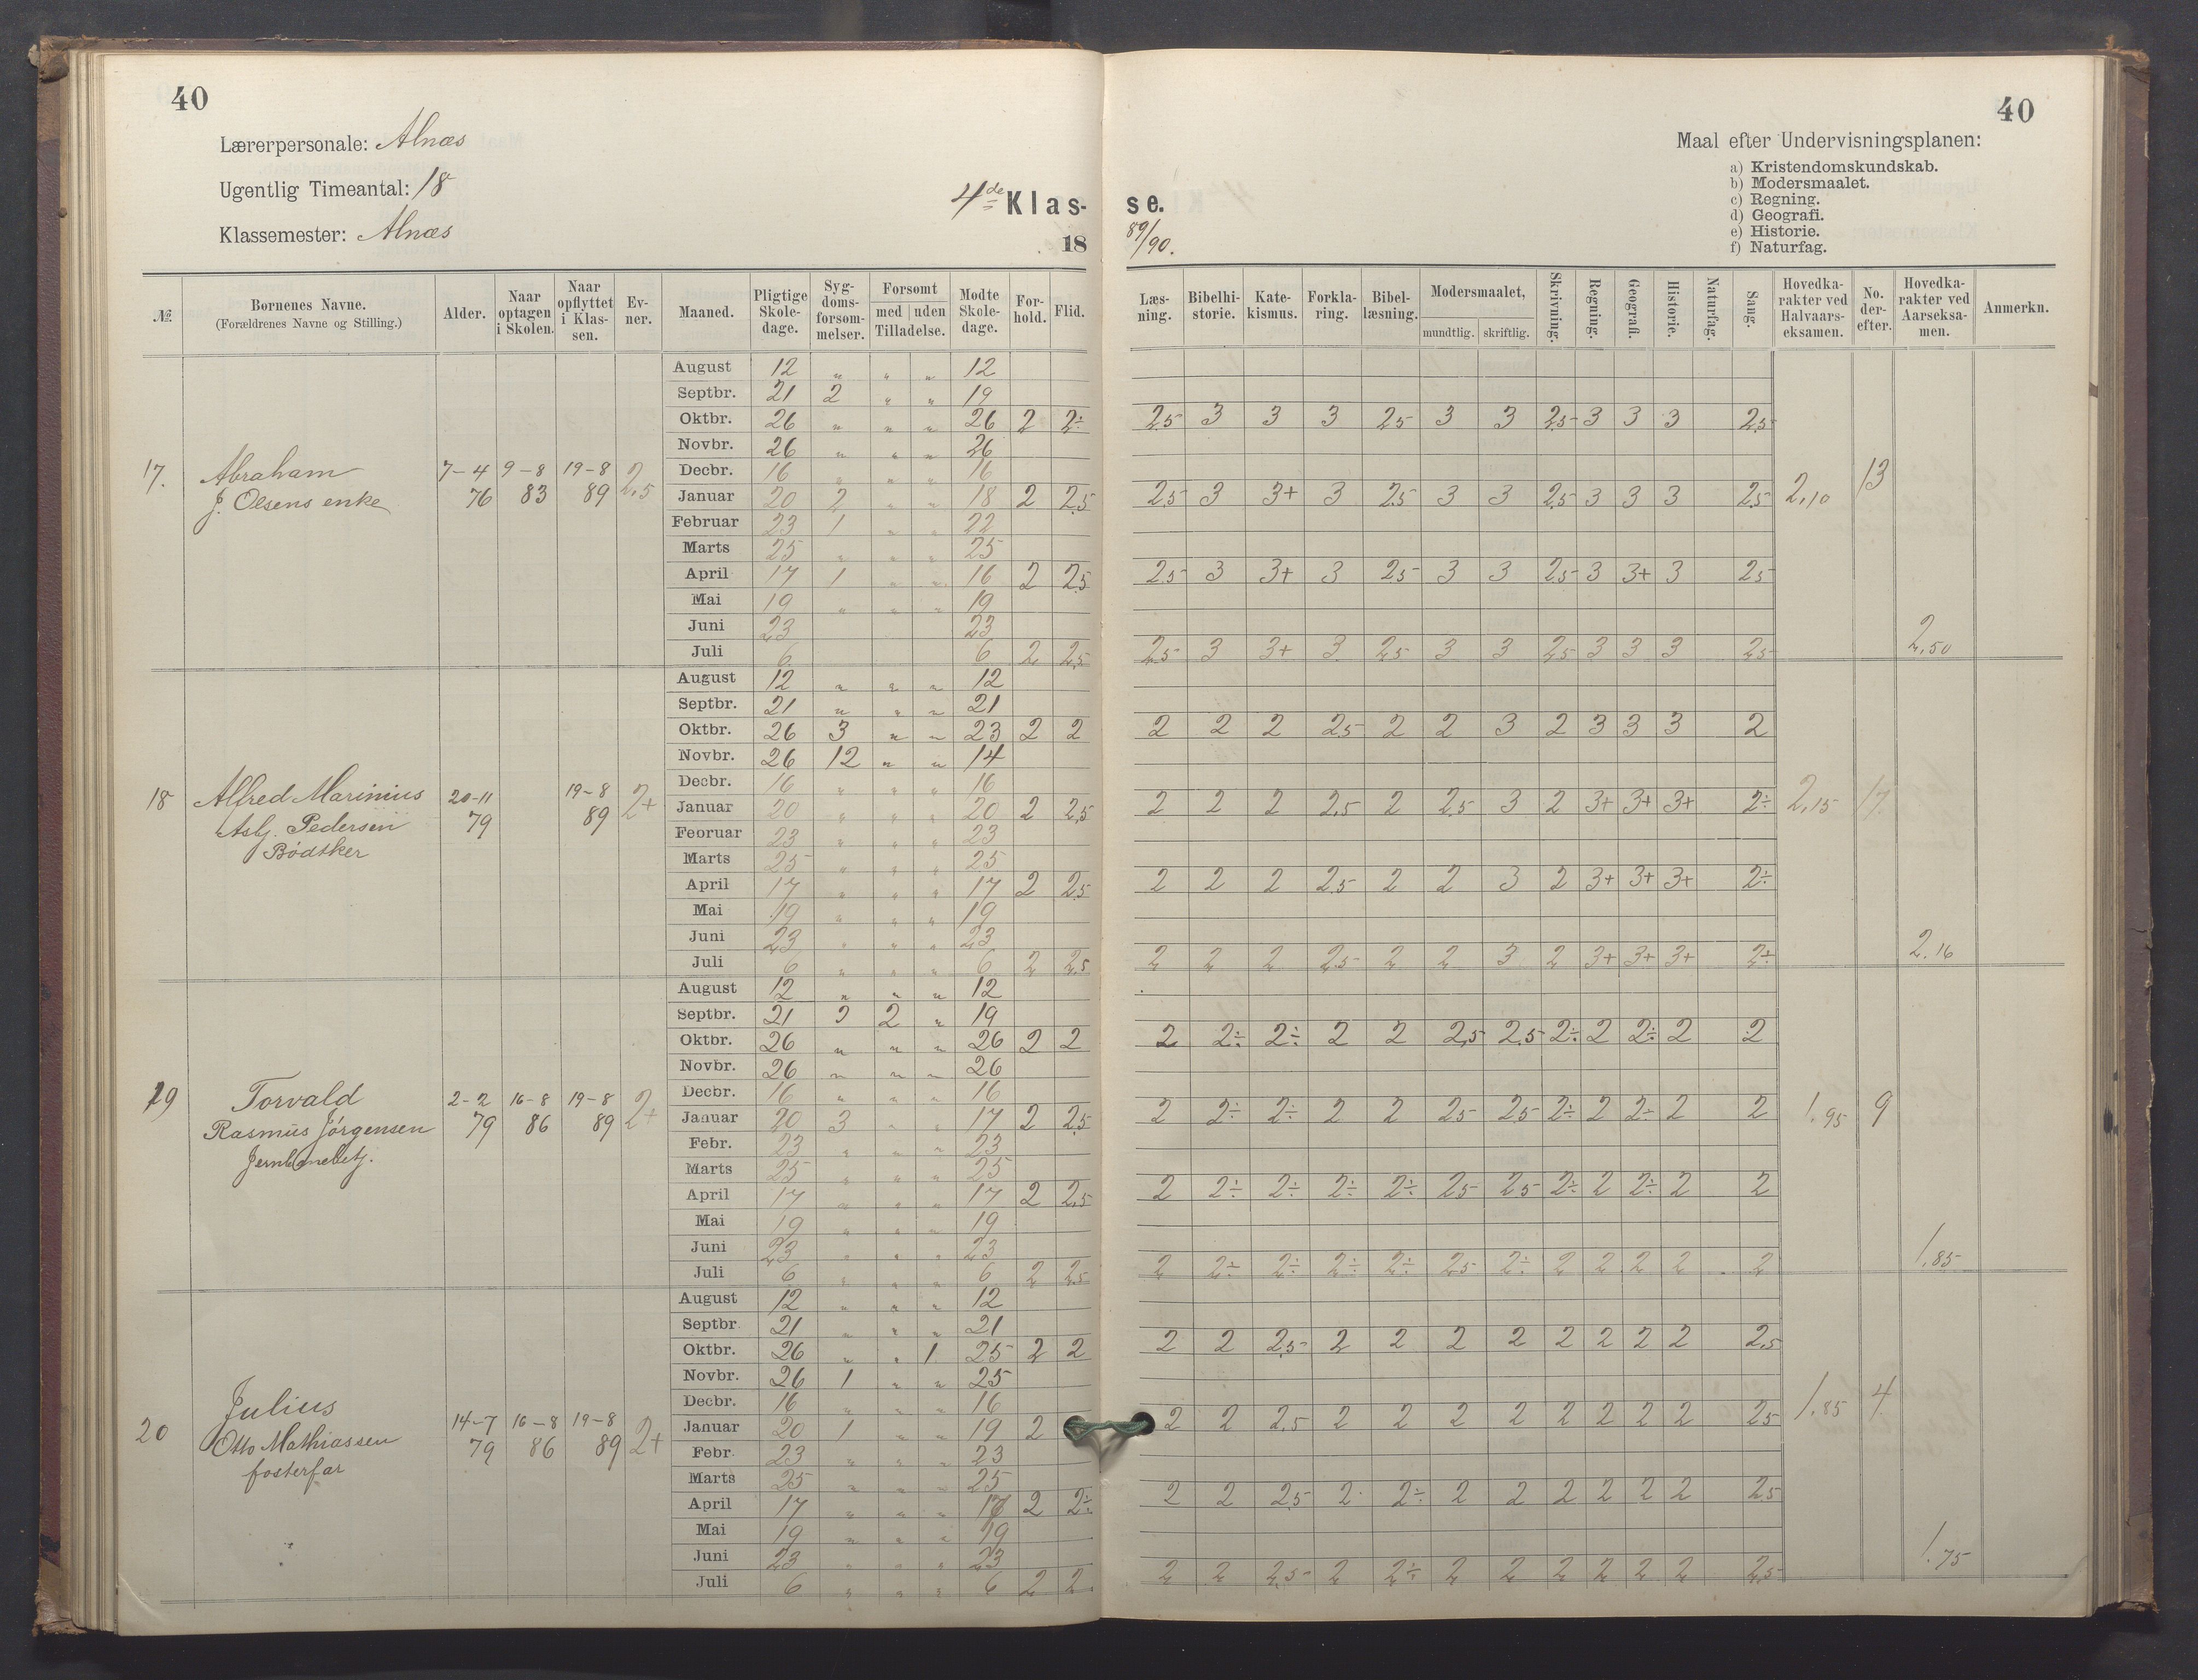 40
Lærerpersonale: Alnæs
Ugentlig Timeantal: 18
Klassemester: Alnæs
4de Klas-
18
№.
Børnenes Navne.
(Forældrenes Navne og Stilling.)
Alder.
Naar optagen i Skolen.
Naar opflyttet i Klas-sen.
Ev-ner.
Maaned.
Pligtige Skole-dage.
Syg-doms-forsøm-melser.
Forsømt
med uden
Tilladelse.
Mødte Skole-dage.
For-hold.
Flid.
August 12 „ „ „ 12
Septbr. 21 2 „ „ 19
Oktbr. 26 „ „ „ 26 2 2÷
Novbr. 26 „ „ „ 26
17. Abraham 7-4 9-8 19-8 2,5 Decbr. 16 „ „ „ 16
J. Olsens enke 76 83 89 Januar 20 2 „ „ 18 2 2,5
Februar 23 1 „ „ 22
Marts 25 „ „ „ 25
April 17 1 „ „ 16 2 2,5
Mai 19 „ „ „ 19
Juni 23 23
Juli 6 6 2 2,5
August 12 „ „ „ 12
Septbr. 21 „ „ „ 21
Oktbr. 26 3 „ „ 23 2 2
Novbr. 26 12 „ „ 14
18 Alfred Marinius 20-11 19-8 2+ Decbr. 16 „ „ „ 16
Asbj. Pedersen 79 89 Januar 20 „ „ „ 20 2 2,5
Bødtker Feoruar 23 „ „ „ 23
Marts 25 „ „ „ 25
April 17 „ „ „ 17 2 2,5
Mai 19 „ „ „ 19
Juni 23 „ „ „ 23
Juli 6 „ „ „ 6 2 2,5
August 12 „ „ „ 12
Septbr. 21 2 „ 19
Oktbr. 26 „ „ „ 26 2 2
Novbr. 26 „ „ „ 26
19 Torvald 2-2 16-8 19-8 2+ Decbr. 16 „ „ „ 16
Rasmus Jørgensen 79 86 89 Januar 20 3 „ „ 17 2 2,5
Jernbanebetj. Febr. 23 „ „ „ 23
Marts 25 „ „ „ 25
April 17 „ „ „ 17 2 2,5
Mai 19 „ „ „ 19
Juni 23 „ „ „ 23
Juli 6 „ „ „ 6 2 2,5
August 12 „ „ „ 12
Septbr. 21 „ „ „ 21
Oktbr. 26 „ „ 1 25 2 2
Novbr. 26 1 „ „ 25
20 Julius 14-7 16-8 19-8 2+ Decbr. 16 „ „ „ 16
Otto Mathiassen 79 86 89 Januar 20 1 „ „ 19 2
fosterfar Febr. 23 „ „ „ 23
Marts 25 „ „ „ 25
April 17 „ „ „ 2 2÷
Mai 19 „ „ „ 19
Juni 23 „ „ „ 23
Juli 6 „ „ „ 6 2 2
40
se.
89/90.
Maal efter Undervisningsplanen:
a) Kristendomskundskab.
b) Modersmaalet.
c) Regning.
d) Geografi.
e) Historie.
f) Naturfag.
Læs-ning.
Bibelhi-storie.
Kate-kismus.
Forkla-ring.
Bibel-læsning.
Modersmaalet,
mundtlig. skriftlig.
Skrivning.
Regning.
Geografi.
Historie.
Naturfag.
Sang.
Hovedka-rakter ved Halvaars-eksamen.
No. der-efter.
Hovedka-rakter ved Aarseksa-men.
Anmerkn.
2,5 3 3 3 2,5 3 3 2,5 3 3 3 2,5
2,5 3 3+ 3 2,5 3 3 2,5 3 3 3 2,5 2,10 13
2,5 3 3+ 3 2,5 3 3 2,5 3 3+ 3 2,5
2,5 3 3+ 3 2,5 3 3 2,5 3 3 3 2,5 2,50
2 2 2 2,5 2 2 3 2 3 3 3 2
2 2 2 2,5 2 2,5 3 2 3+ 3+ 3+ 2÷ 2,15 17.
2 2 2 2,5 2 2 3 2 3+ 3+ 3+ 2÷
2 2 2 2,5 2 2 3 2 3+ 3+ 3+ 2÷ 2,16
2 2÷ 2÷ 2 2 2,5 2,5 2÷ 2 2÷ 2 2
2 2÷ 2÷ 2 2 2,5 2,5 2÷ 2 2÷ 2 2 1,95 9
2 2÷ 2÷ 2÷ 2÷ 2,5 2,5 2÷ 2 2÷ 2 2
2 2÷ 2÷ 2÷ 2÷ 2,5 2÷ 2 2 2 2 2 1,85
2 2 2,5 2 2 2 2 2 2 2 2 2,5
2 2 2,5 2 2 2 2 2 2 2 2 2,5 1,85 4
2 2 2,5 2 2÷ 2 2 2 2 2 2 2,5
2 2 2,5 2 2÷ 2 2 2 2 2 2 2,5 1,75